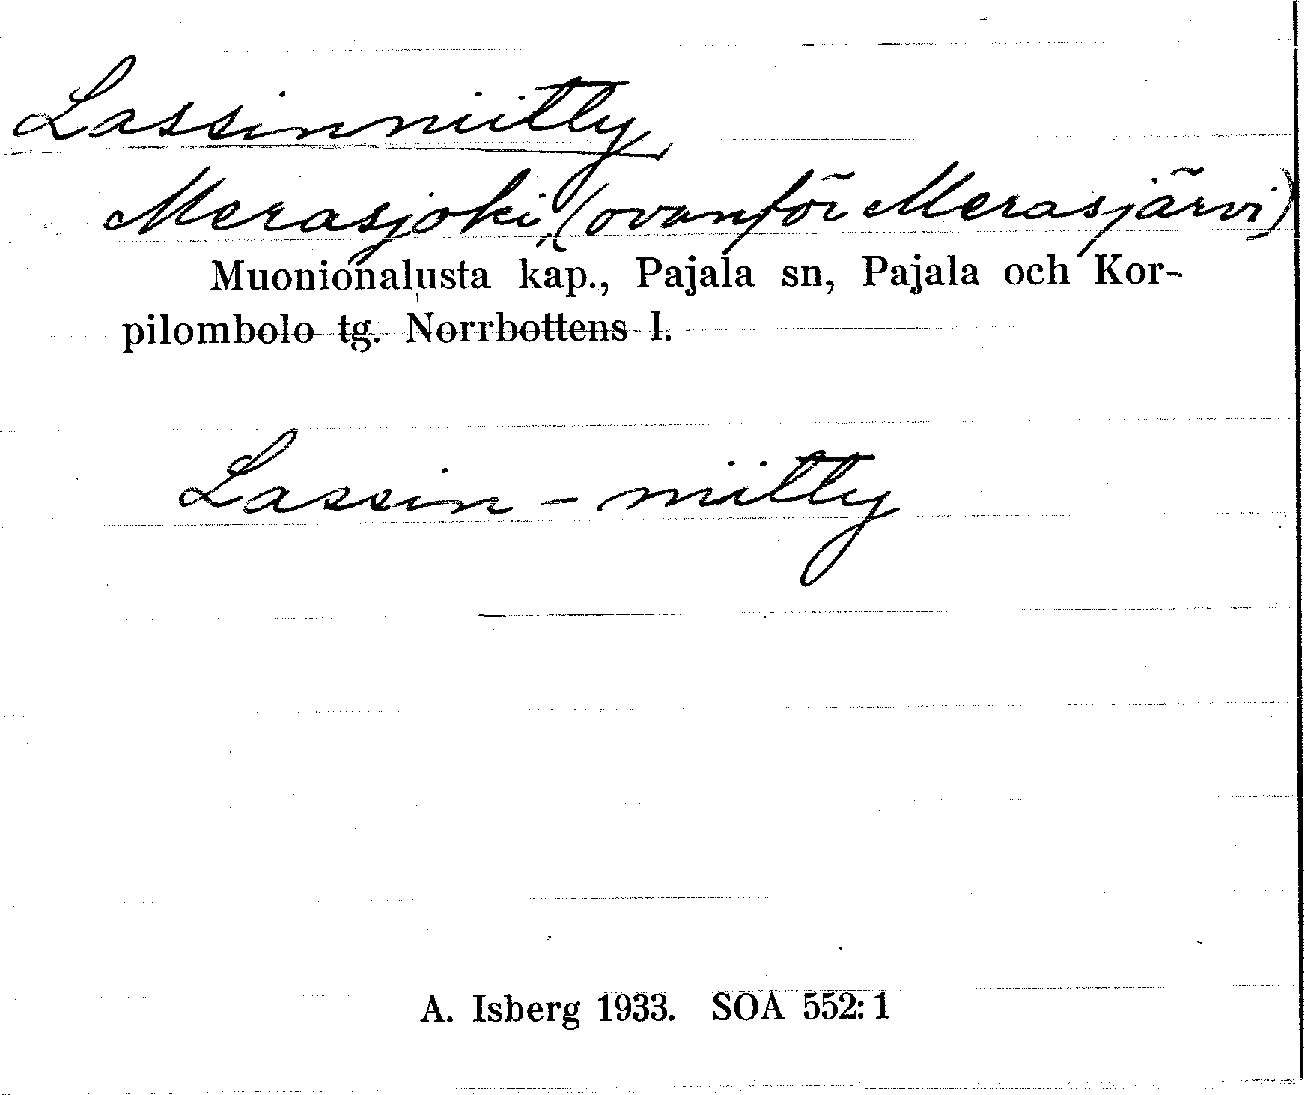 Lassinniitty
Merasjoki, (ovanför Merasjärvi)
Muonionalusta kap., Pajala sn, Pajala och Kor-
pilombolo tg. Norrbottens l.
Lassin - niitty
A. Isberg 1933. SOA 552: 1